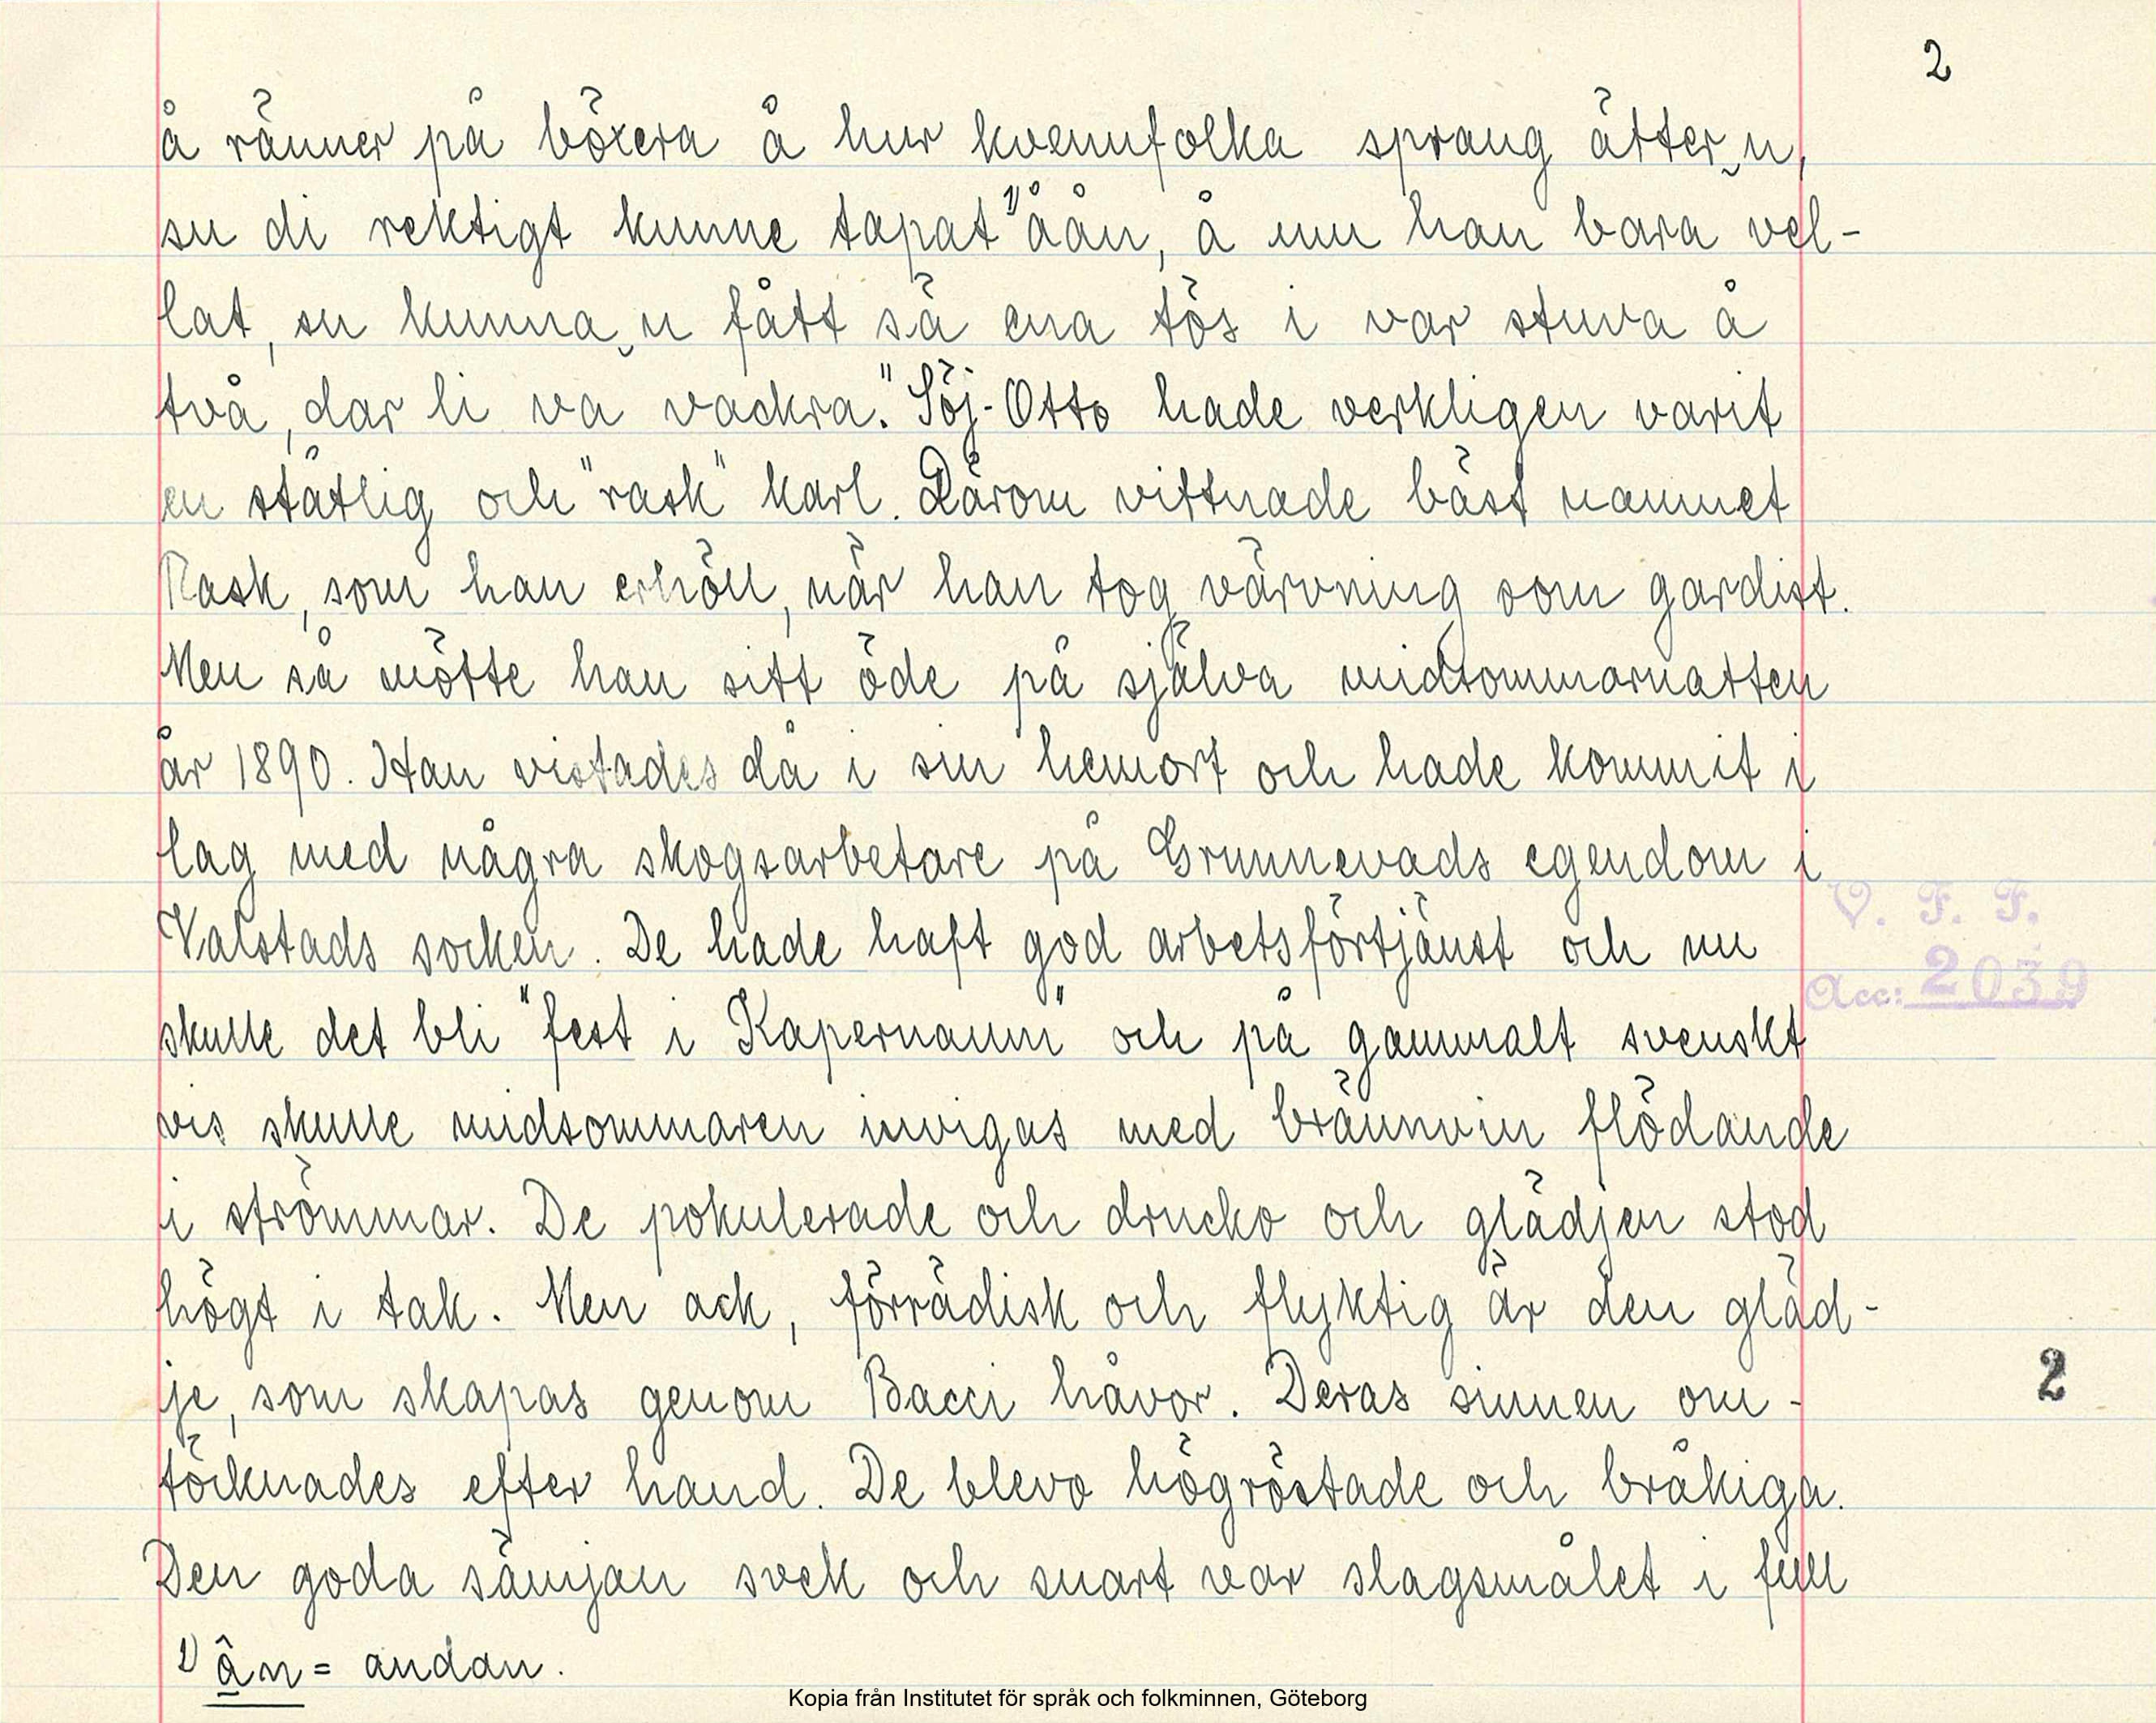 2
å ränner på böxera å hur kvennfolka sprang ätter‿n,
su di rektigt kunne tapat ¹⁾åån, å nu han bara vel-
lat, su kunna‿n fått sä ena tös i var stuva å
två, dar li va vackra." Söj-Otto hade verkligen varit
en ståtlig och "rask" karl. Därom vittnade bäst namnet
Rask, som han erhöll, när han tog värvning som gardist.
Men så mötte han sitt öde på själva midsommarnatten
år 1890. Han vistades då i sin hemort och hade kommit i
lag med några skogsarbetare på Grunnevads egendom i
Valstads socken. De hade haft god arbetsförtjänst och nu
skulle det bli "fest i Kapernaum" och på gammalt svenskt
vis skulle midsommaren invigas med brännvin flödande
i strömmar. De pokulerade och drucko och glädjen stod
högt i tak. Men ack, förrädisk och flyktig är den gläd-
je, som skapas genom Bacci håvor. Deras sinnen om-
töcknades efter hand. De blevo högröstade och bråkiga.
Den goda sämjan svek och snart var slagsmålet i full
1) ân = andan.
V. F. F.
Acc: 2039
2
Kopia från Institutet för språk och folkminnen, Göteborg